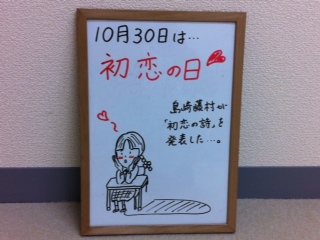 10月30日は…
初恋の日
島崎藤村が
「初恋の詩」を
発表した…。